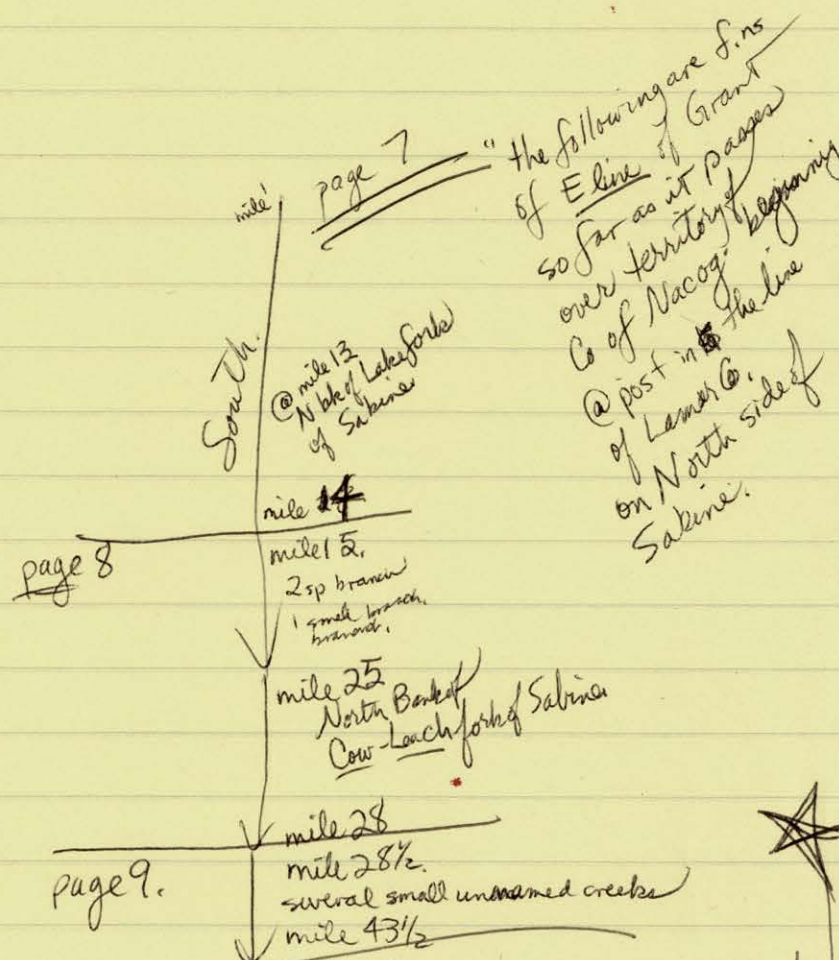 page 7
"the following are f.ns
of E line of Grant
so far as it passes
over territory of
Co of Nacog. beginning
@ post in the line
of Lamar Co.
on North side of
Sabine.
mile 1
South.
@ mile 13
N bk of Lake forks
of Sabine
mile 14
page 8
mile 15.
2 sp branch
1 small branch.
mile 25
North Bank of
Cow-Leach fork of Sabine
mile 28
page 9.
mile 28½.
several small unnamed creeks
mile 43½